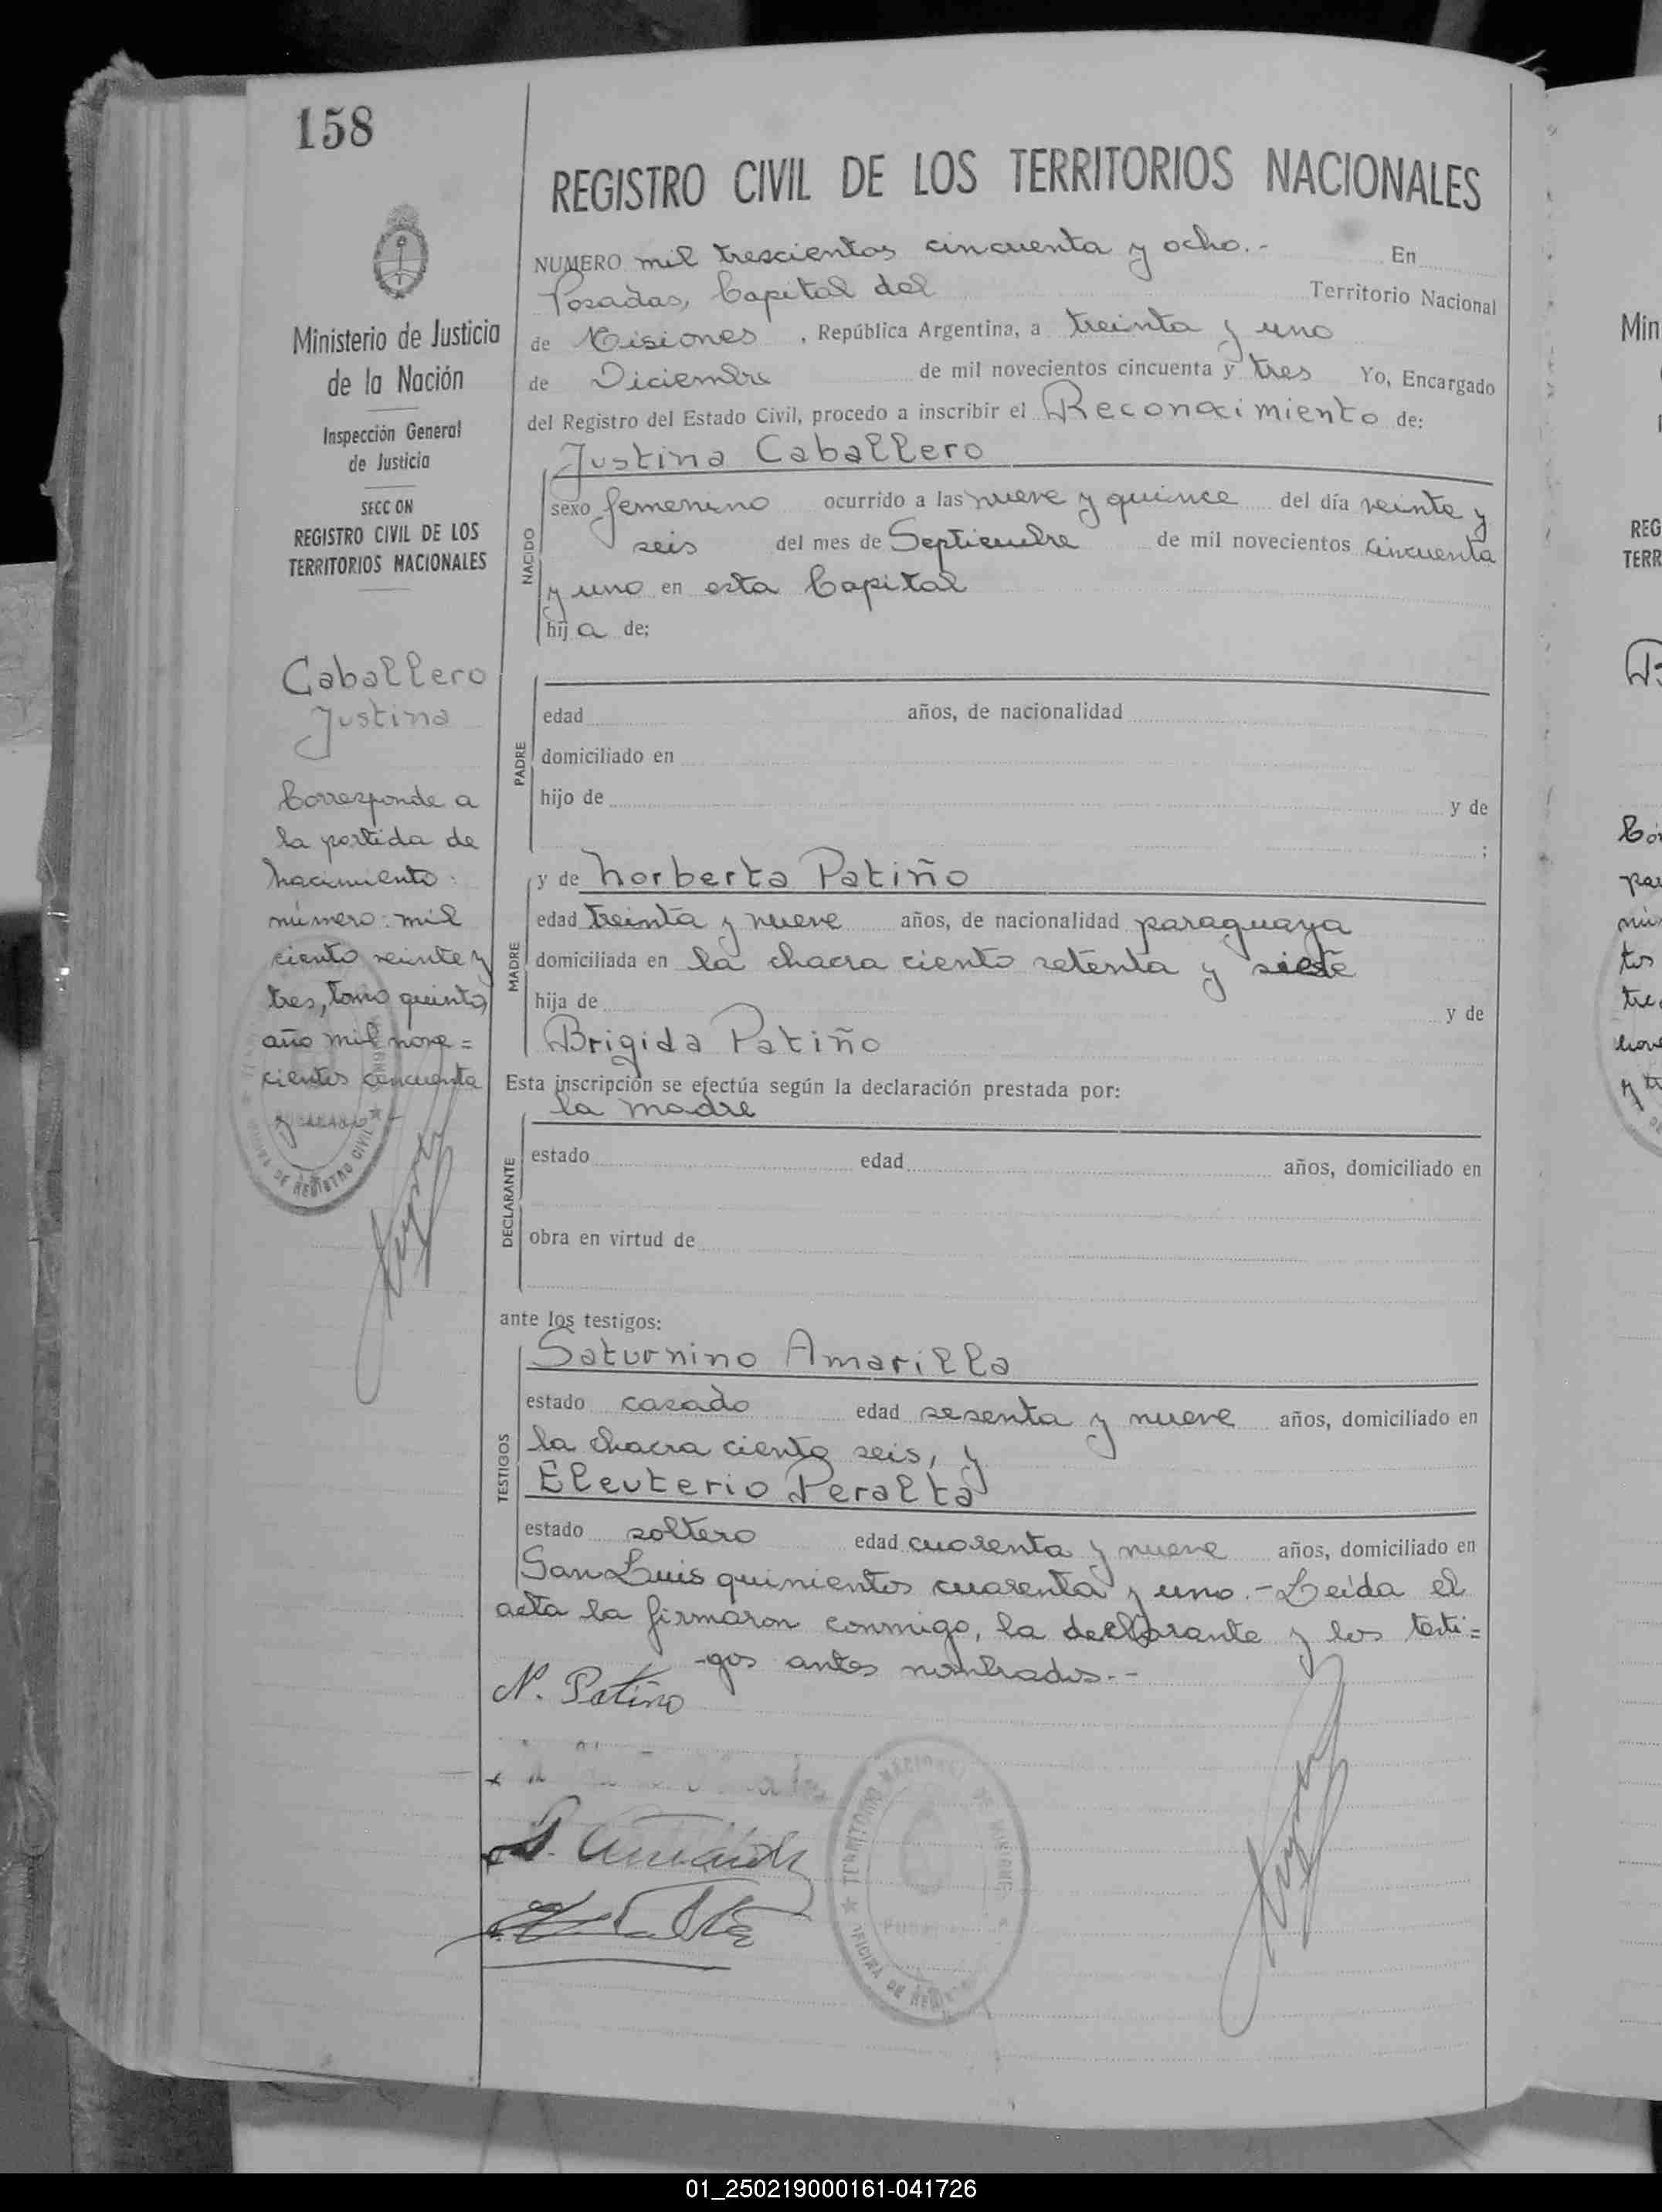 158
REGISTRO CIVIL DE LOS TERRITORIOS NACIONALES
NUMERO mil trescientos cincuenta y ocho.- En
Posadas, Capital del Territorio Nacional
de Misiones , República Argentina, a treinta y uno
de Diciembre de mil novecientos cincuenta y tres Yo, Encargado
del Registro del Estado Civil, procedo a inscribir el Reconocimiento de:
Justina Caballero
NACIDO
sexo femenino ocurrido a las nueve y quince del día veinte y
seis del mes de Septiembre de mil novecientos cincuenta
y uno en esta Capital
hija de;
PADRE
edad años, de nacionalidad
domiciliado en
hijo de y de
;
MADRE
y de Norberta Patiño
edad treinta y nueve años, de nacionalidad paraguaya
domiciliada en la chacra ciento setenta y siete
hija de y de
Brigida Patiño
Esta inscripción se efectúa según la declaración prestada por:
la madre
DECLARANTE
estado edad años, domiciliado en
obra en virtud de
ante los testigos:
TESTIGOS
Saturnino Amarilla
estado casado edad sesenta y nueve años, domiciliado en
la chacra ciento seis, y
Eleuterio Peralta
estado soltero edad cuarenta y nueve años, domiciliado en
San Luis quinientos cuarenta y uno.- Leída el
acta la firmaron conmigo, la declarante y los testi=
-gos antes nombrados.-
N. Patiño
TERRITORIO NACIONAL DE MISIONES
OFICINA DE REGISTRO
Ministerio de Justicia
de la Nación
Inspección General
de Justicia
SECCON
REGISTRO CIVIL DE LOS
TERRITORIOS NACIONALES
Caballero
Justina
Corresponde a
la partida de
nacimiento:
número: mil
ciento veinte y
tres, tomo quinto,
año mil nove=
cientos cincuenta
DE REGISTRO CIVIL
Min
REG
TERR
01_250219000161-041726